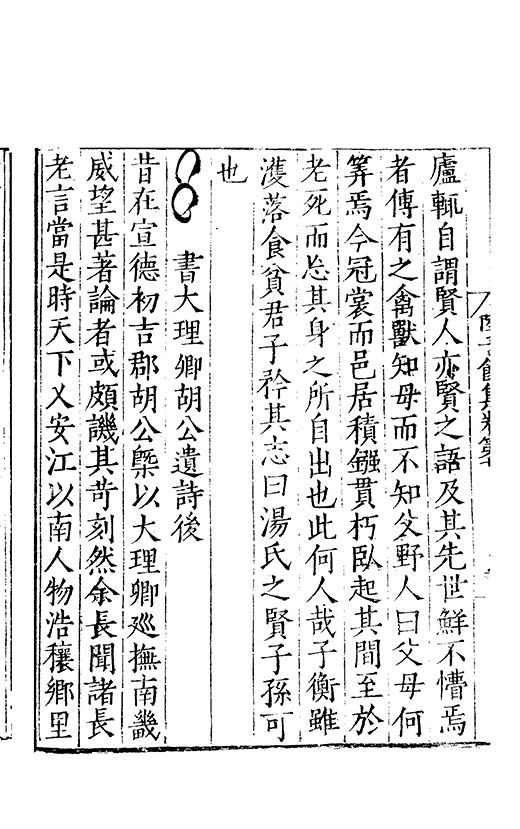 廬輒自謂賢人亦賢之語及其先世鮮不懵焉
者傳有之禽獸知母而不知父野人曰父母何
筭焉今冠裳而邑居積鏹貫朽臥起其間至於
老死而忘其身之所自出也此何人哉子衡雖
濩落食貧君子矜其志曰湯氏之賢子孫可
也
書大理卿胡公遺詩後
昔在宣德初吉郡胡公槩以大理卿廵撫南畿
威望甚著論者或頗譏其苛刻然余長聞諸長
老言當是時天下乂安江以南人物浩穰鄉里